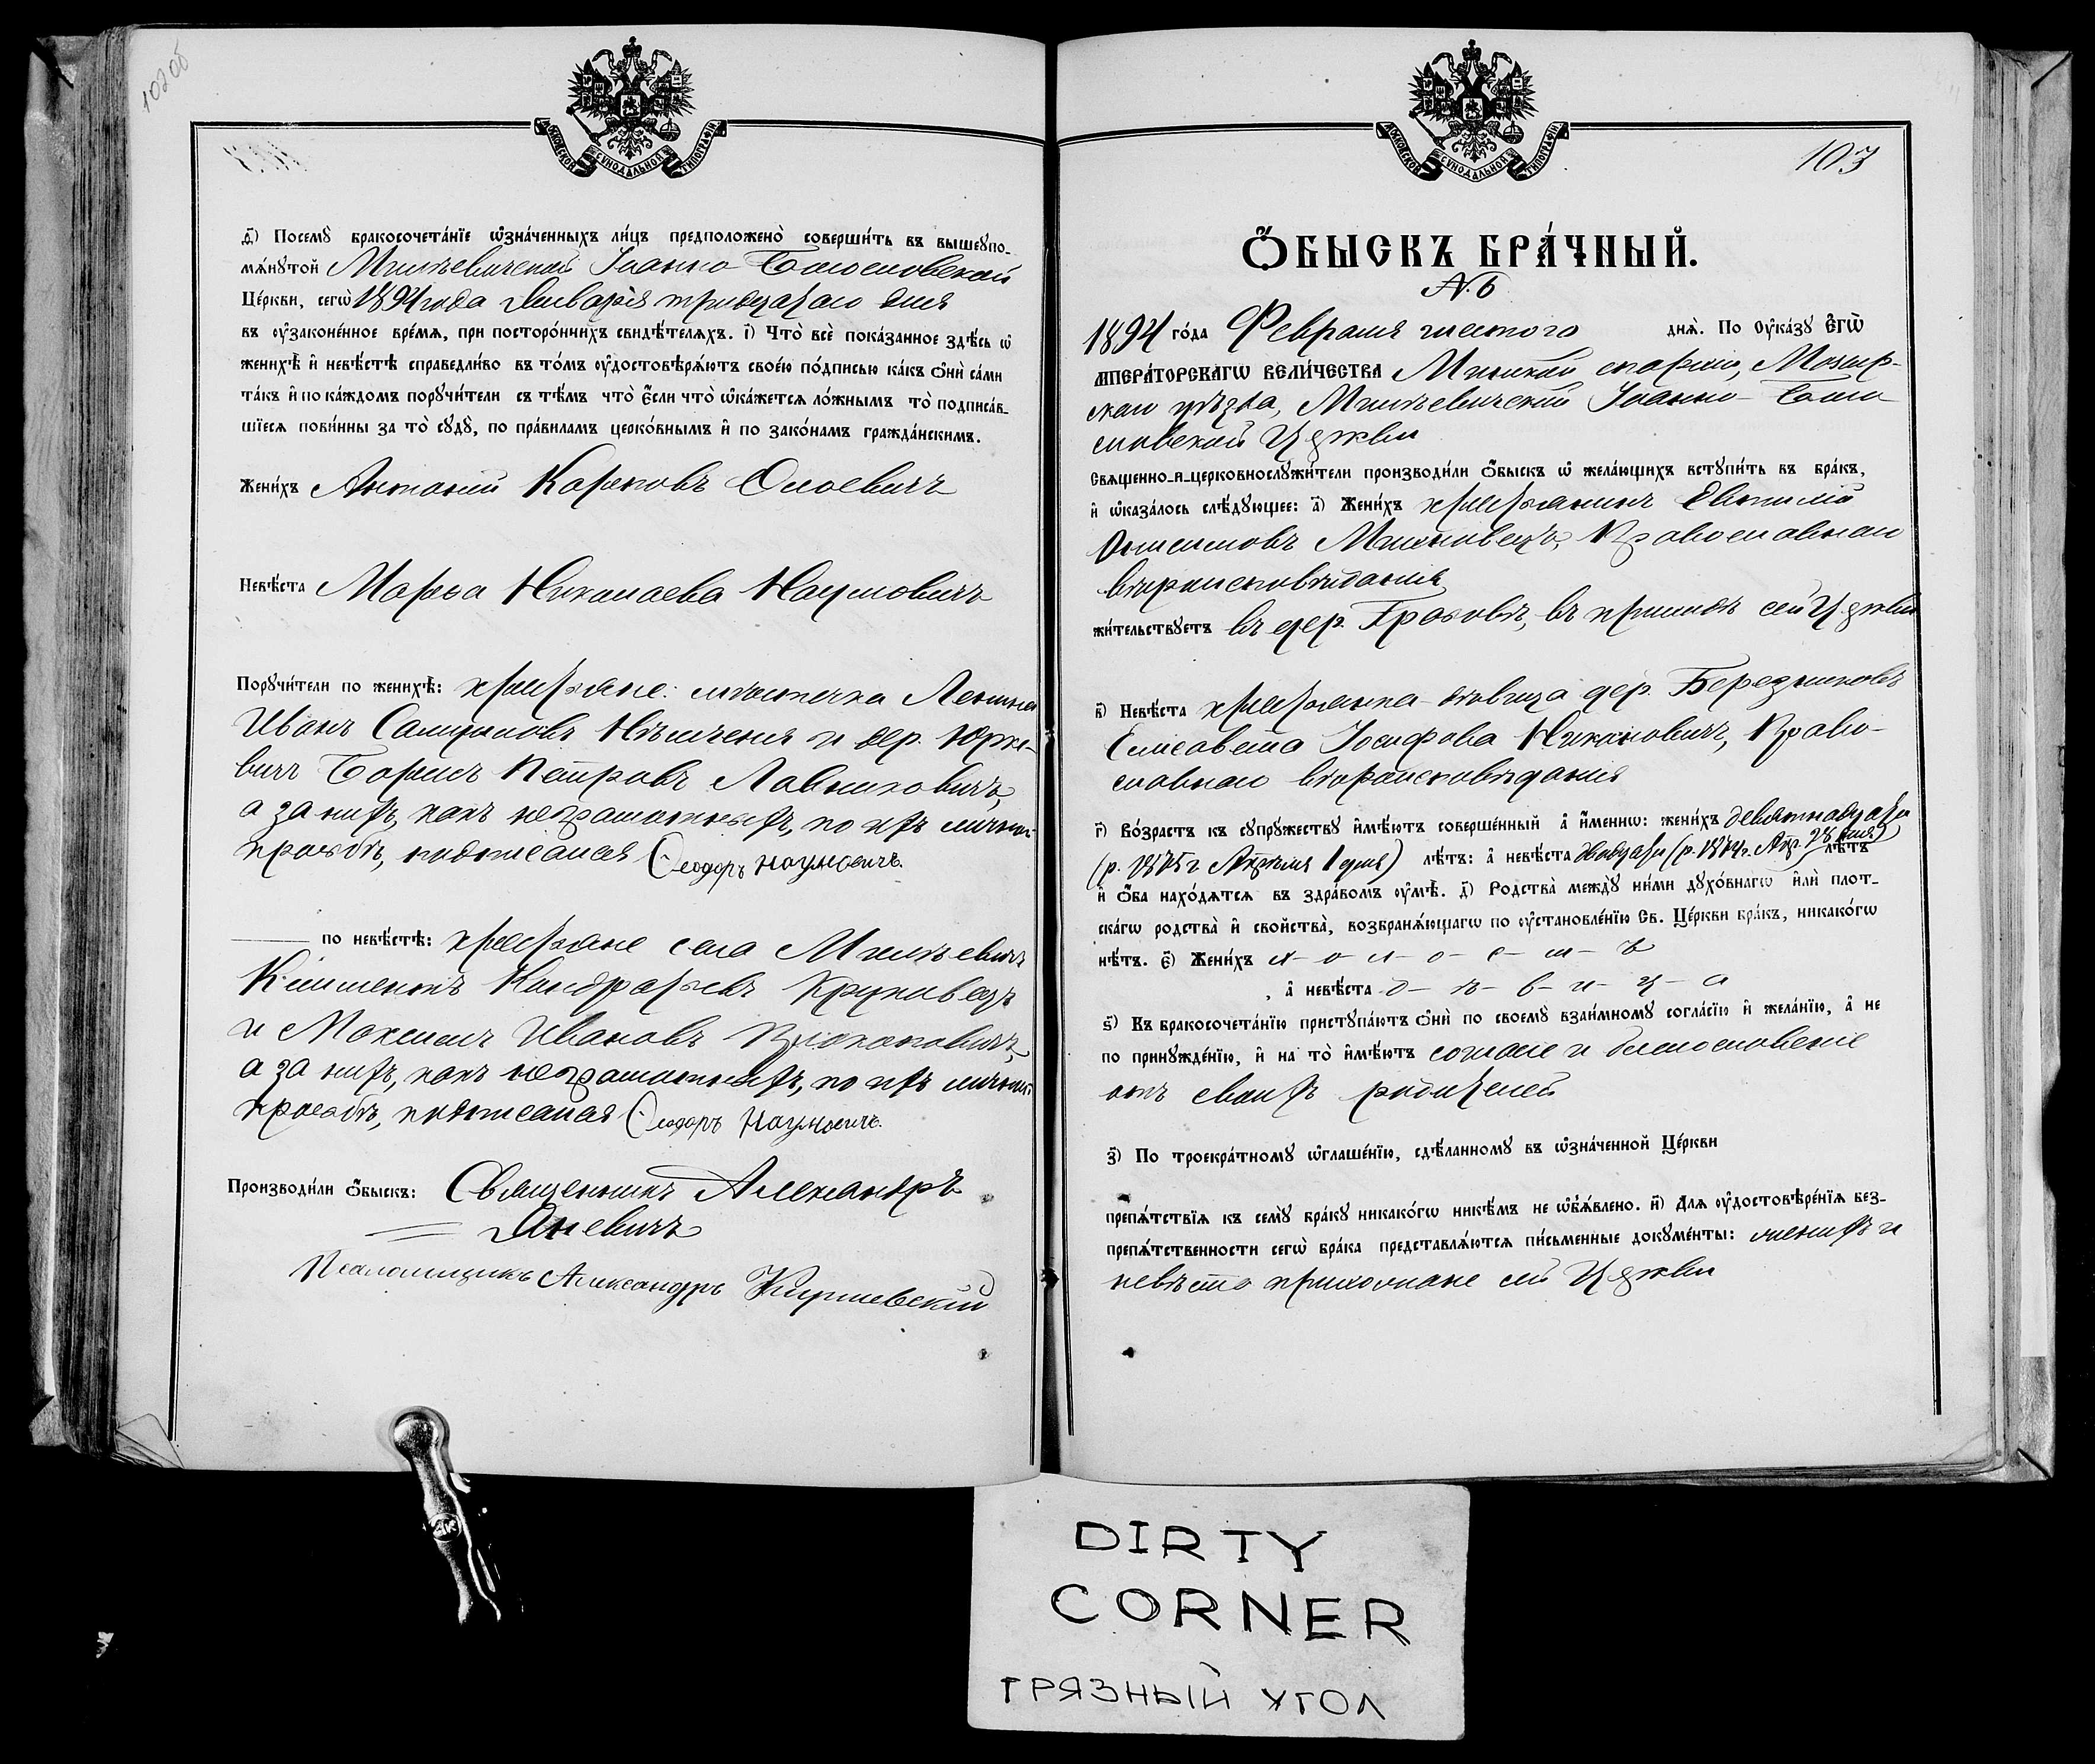 102об
МОСКОВСКОЙ СѴНОДАЛЬНОЙ ТИПОГРАФІИ
ѳ҃) Посемꙋ бракосочета́нїе ѡ҆зна́ченныхъ ли́цъ предположено̀ соверши́ть въ вышеꙋпо-
мѧ́нꙋтой Милевичской Іоанно-Богословской
Це́ркви, сегѡ̀ 1894 года Января тридцатаго дня
въ оу҆законе́нное вре́мѧ, при посторо́ннихъ свидѣ́телѧхъ. і҃) Что̀ всѐ пока́занное здѣ́сь ѡ҆
женихѣ̀ и҆ невѣ́стѣ справедли́во въ то́мъ оу҆достовѣрѧ́ютъ свое́ю по́дписью ка́къ ѻ҆нѝ са́ми
та́къ и҆ по ка́ждомъ порꙋчи́тели съ тѣ́мъ что̀ є҆́сли что̀ ѡ҆ка́жетсѧ ло́жнымъ то̀ подписа́в-
шїесѧ пови́нны за то̀ сꙋдꙋ̀, по пра́виламъ церко́внымъ и҆ по зако́намъ гражда́нскимъ.
Жени́хъ Антоній Карповъ
Невѣ́ста Марѳа Николаева Наумовичъ
Порꙋчи́тели по женихѣ̀: крестьяне: мѣстечка Ленина
Иванъ Нѣмченя и дер. Юрке-
вичъ Борисъ Петровъ
а за нихъ, какъ неграмотныхъ, по ихъ личной
просьбѣ, подписался Ѳеодоръ Наумовичъ.
по невѣ́стѣ: крестьяне села Милевичъ
Климентъ Кондратьевъ Круковецъ
и Максимъ Ивановъ Прокоповичъ,
а за нихъ, какъ неграмотныхъ, по ихъ личной
просьбѣ, подписался Ѳеодоръ Наумовичъ.
Производи́ли ѻ҆́быскъ: Священникъ Александръ
Яневичъ
Псаломщикъ Александръ
МОСКОВСКОЙ СѴНОДАЛЬНОЙ ТИПОГРАФІИ
103
Ѻ҆́БЫСКЪ БРА́ЧНЫЙ.
№ 6
1894 го́да Февраля шестого днѧ̀. По Оу҆ка́зꙋ Є҆гѡ̀
И҆МПЕРА́ТОРСКАГѠ ВЕЛИ́ЧЕСТВА Минской епархіи, Мозыр-
скаго уѣзда, Милевичской Іоанно-Бого-
словской Церкви
Свѧщенно-и-церковнослꙋжи́тели производи́ли ѻ҆́быскъ ѡ҆ жела́ющихъ встꙋпи́ть въ бра́къ,
и҆ ѡ҆каза́лось слѣ́дꙋющее: а҃) Жени́хъ крестьянинъ Евтимій
Онисимовъ Михновецъ, Православнаго
вѣроисповѣданія
жи́тельствꙋетъ въ дер. Грабовѣ, въ приходѣ сей Церкви
в҃) Невѣ́ста крестьянка-дѣвица дер. Березняковъ
Елисавета Іосифова Никоновичъ, Право-
славнаго вѣроисповѣданія
г҃) Во́зрастъ къ сꙋпрꙋ́жествꙋ и҆мѣ́ютъ соверше́нный а҆ и҆́меннѡ: жени́хъ девятнадцати
(р. 1875 г. Апрѣля 1 дня) лѣ́тъ: а҆ невѣ́ста двадцати (р. 1874 г. Апр. 28 дня) лѣ́тъ
и҆ ѻ҆́ба нахо́дѧтсѧ въ здра́вомъ оу҆мѣ̀. д҃) Родства̀ междꙋ̀ ни́ми дꙋхо́внагѡ и҆лѝ плот-
ска́гѡ родства̀ и҆ свойства̀, возбранѧ́ющагѡ по оу҆становле́нїю Св. Це́ркви бра́къ, никако́гѡ
нѣ́тъ. є҃) Жени́хъ х-о-л-о-с-т-ъ
, а҆ невѣ́ста д-ѣ-в-и-ц-а
ѕ҃) Къ бракосочета́нїю пристꙋпа́ютъ ѻ҆нѝ по своемꙋ̀ взаи́мномꙋ согла́сїю и҆ жела́нїю, а҆ не
по принꙋжде́нїю, и҆ на то̀ и҆мѣ́ютъ согласіе и благословеніе
отъ своихъ родителей
з҃) По троекра́тномꙋ ѡ҆глаше́нїю, сдѣ́ланномꙋ въ ѡ҆зна́ченной Це́ркви
препѧ́тствїѧ къ семꙋ̀ бра́кꙋ никако́гѡ никѣ́мъ не ѡ҆б̾ѧ́влено. и҃) Длѧ оу҆достовѣре́нїѧ без-
препѧ́тственности сегѡ̀ бра́ка представлѧ́ютсѧ пи́сьменные докꙋме́нты: женихъ и
невѣста прихожане сей Церкви
DIRTY
CORNER
ГРЯЗНЫЙ УГОЛ